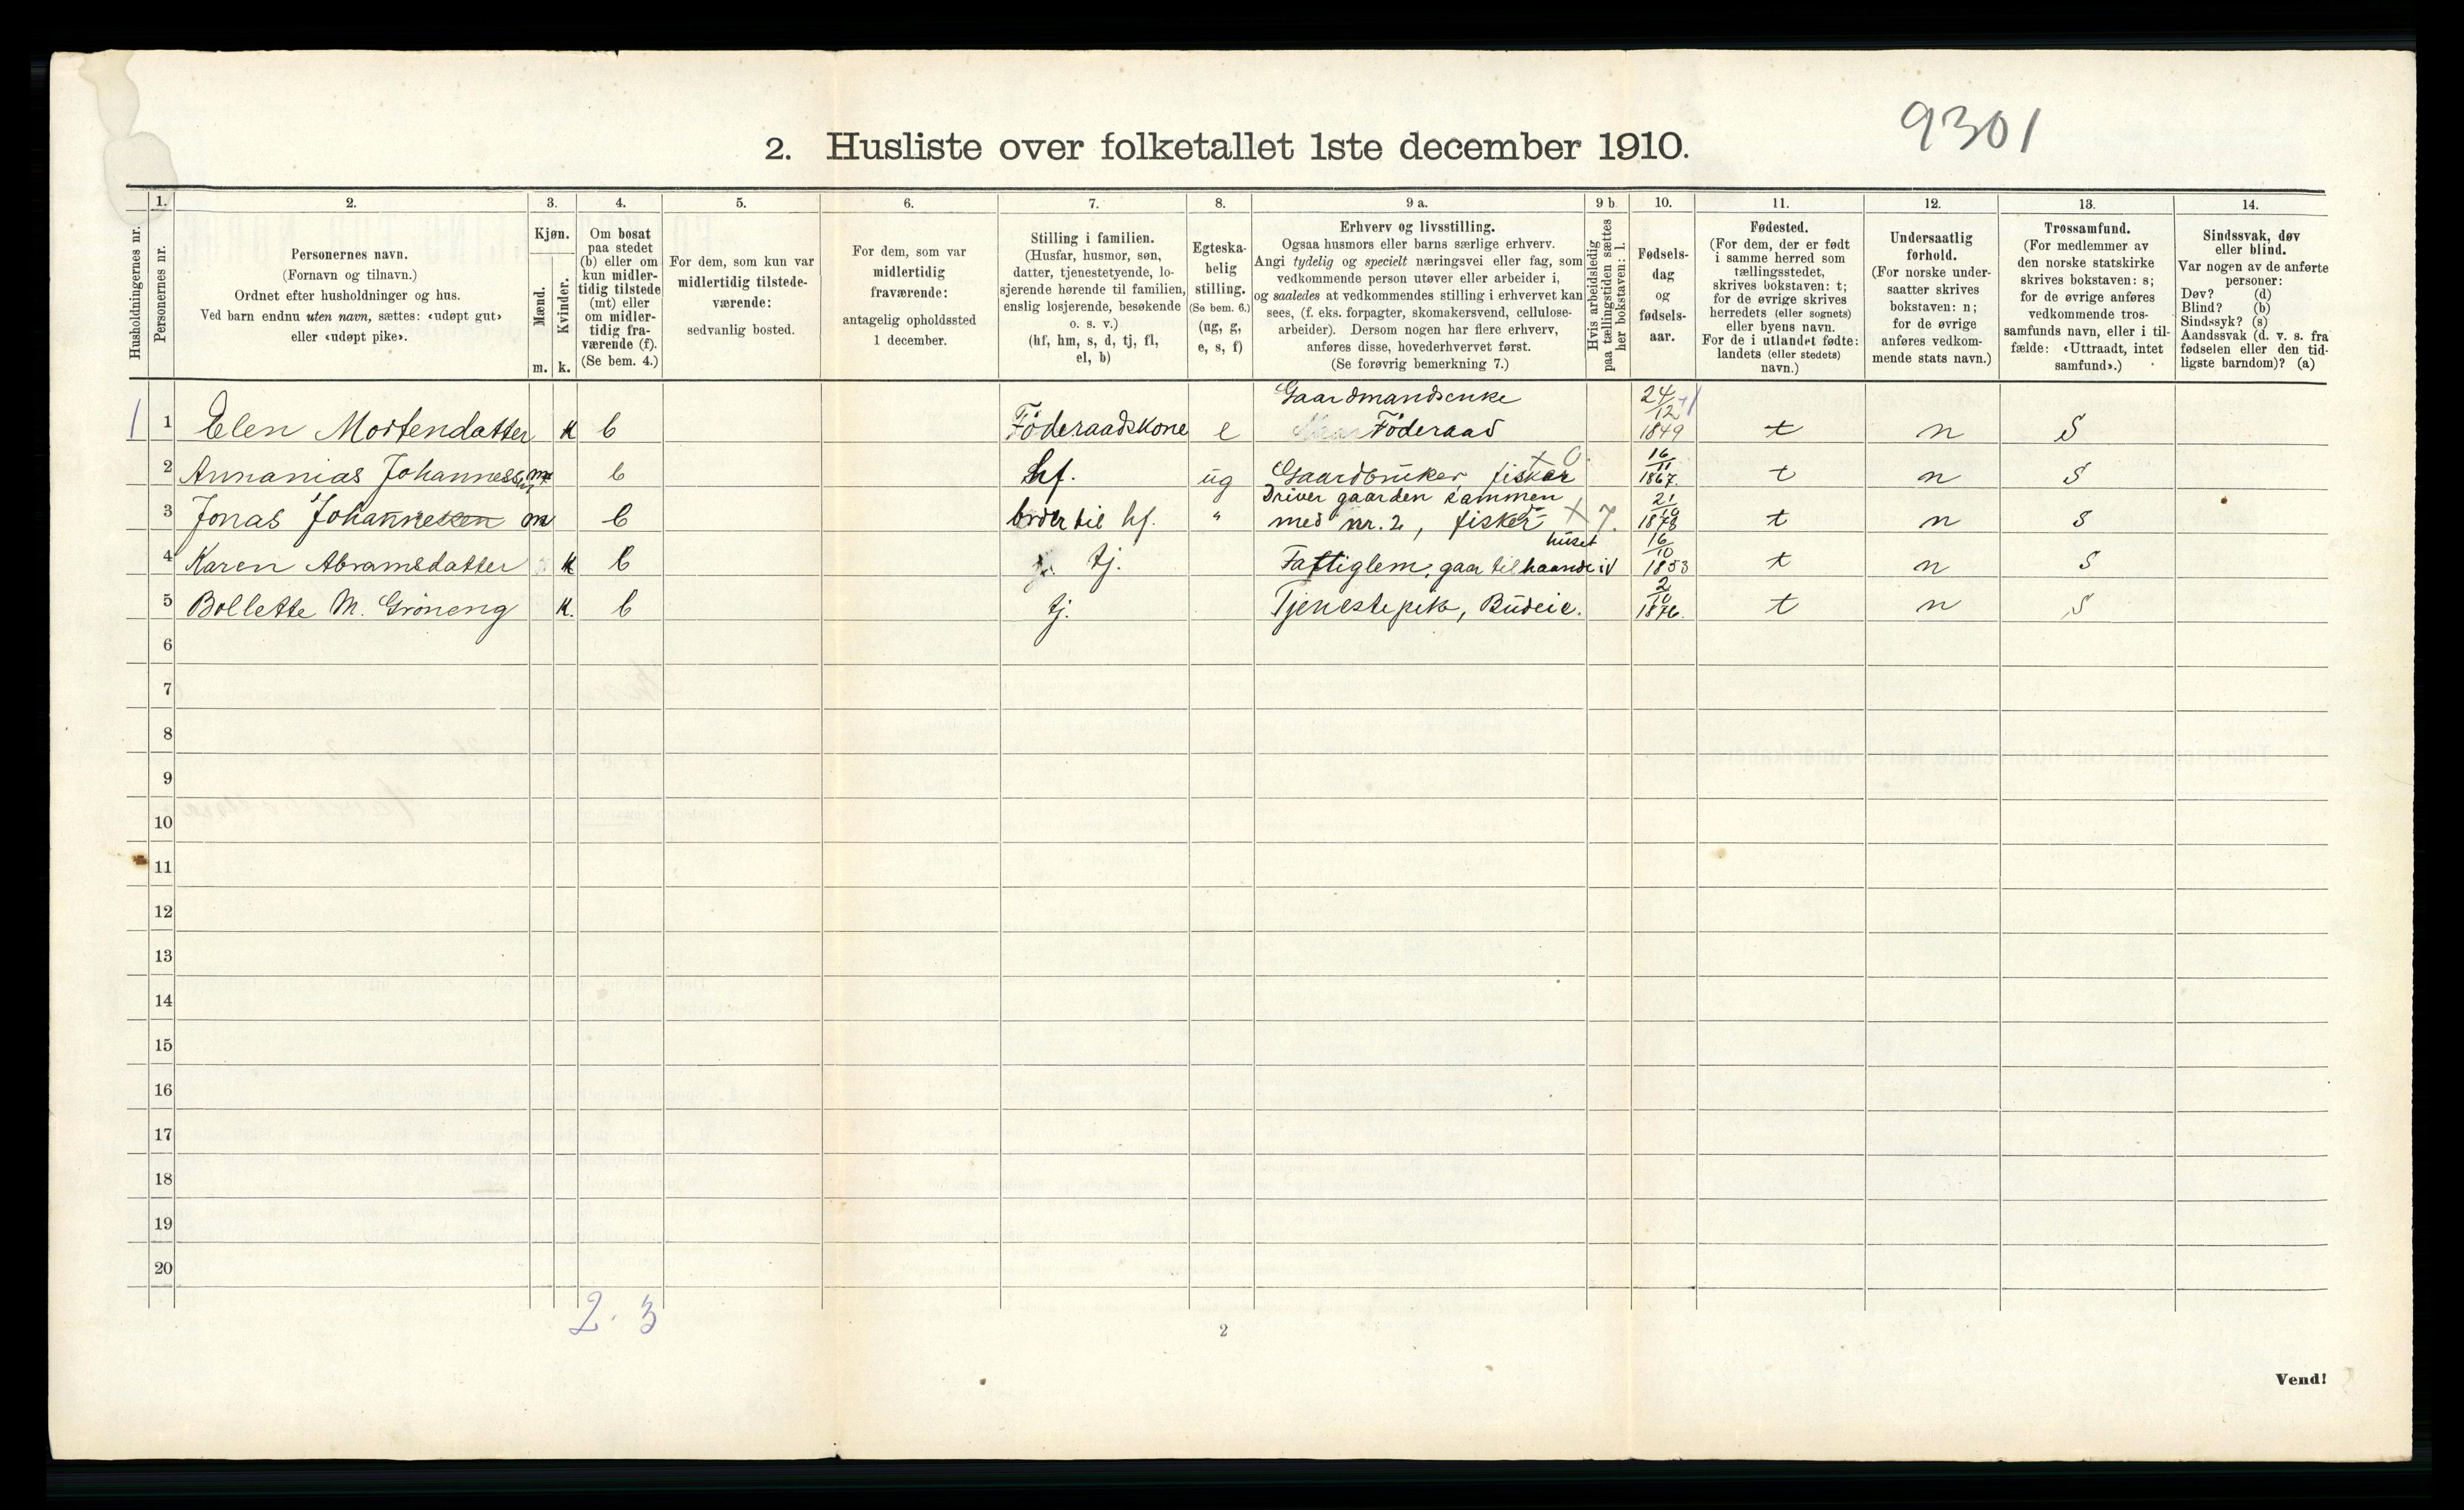 9301
2. Husliste over folketallet 1ste december 1910.
Husholdningernes nr.
1.
Personernes nr.
2.
Personernes navn.
(Fornavn og tilnavn.)
Ordnet efter husholdninger og hus.
Ved barn endnu uten navn, sættes: «udøpt gut»
eller «udøpt pike».
3.
Kjøn.
Mænd.
Kvinder.
m. k.
4.
Om bosat
paa stedet
(b) eller om
kun midler-
tidig tilstede
(mt) eller
om midler-
tidig fra-
værende (f).
(Se bem. 4.)
5.
For dem, som kun var
midlertidig tilstede-
værende:
sedvanlig bosted.
6.
For dem, som var
midlertidig
fraværende:
antagelig opholdssted
1 december.
7.
Stilling i familien.
(Husfar, husmor, søn,
datter, tjenestetyende, lo-
sjerende hørende til familien,
enslig losjerende, besøkende
o. s. v.)
(hf, hm, s, d, tj, fl,
el, b)
8.
Egteska-
belig
stilling.
(Se bem. 6.)
(ug, g,
e, s, f)
9 a.
Erhverv og livsstilling.
Ogsaa husmors eller barns særlige erhverv.
Angi tydelig og specielt næringsvei eller fag, som
vedkommende person utøver eller arbeider i,
og saaledes at vedkommendes stilling i erhvervet kan
sees, (f. eks. forpagter, skomakersvend, cellulose-
arbeider). Dersom nogen har flere erhverv,
anføres disse, hovederhvervet først.
(Se forøvrig bemerkning 7.)
9 b
Hvis arbeidsledig
paa tællingstiden sættes
her bokstaven: l.
10.
Fødsels-
dag
og
fødsels-
aar.
11.
Fødested.
(For dem, der er født
i samme herred som
tællingsstedet,
skrives bokstaven: t;
for de øvrige skrives
herredets (eller sognets)
eller byens navn.
For de i utlandet fødte:
landets (eller stedets)
navn.)
12.
Undersaatlig
forhold.
(For norske under-
saatter skrives
bokstaven: n;
for de øvrige
anføres vedkom-
mende stats navn.)
13.
Trossamfund.
(For medlemmer av
den norske statskirke
skrives bokstaven: s;
for de øvrige anføres
vedkommende tros-
samfunds navn, eller i til-
fælde: «Uttraadt, intet
samfund».)
14.
Sindssvak, døv
eller blind.
Var nogen av de anførte
personer:
Døv? (d)
Blind? (b)
Sindssyk? (s)
Aandssvak (d. v. s. fra
fødselen eller den tid-
ligste barndom)? (a)
Gaardmandsenke
1 1 Elen Mortendatter k b Föderaadskone e Föderaad 24/12 1849 t n S
2 Annanias Johannessen m b hf. ug Gaardbruker, fisker x 0. 16/11 1867. t n S
Driver gaarden sammen
3 Jonas Johannesen m b broer til hf. " med nr. 2, fisker x 7. 21/10 1878 t n S
huset
4 Karen Abramsdatter k b tj. Fattiglem, gaar tilhaande i 16/10 1853 t n S
5 Bollette M. Gröneng k. b tj. Tjenestepike, Budeie. 2/10 1876. t n S
6
7
8
9
10
11
12
13
14
15
16
17
18
19
20
2. 3
2
Vend!